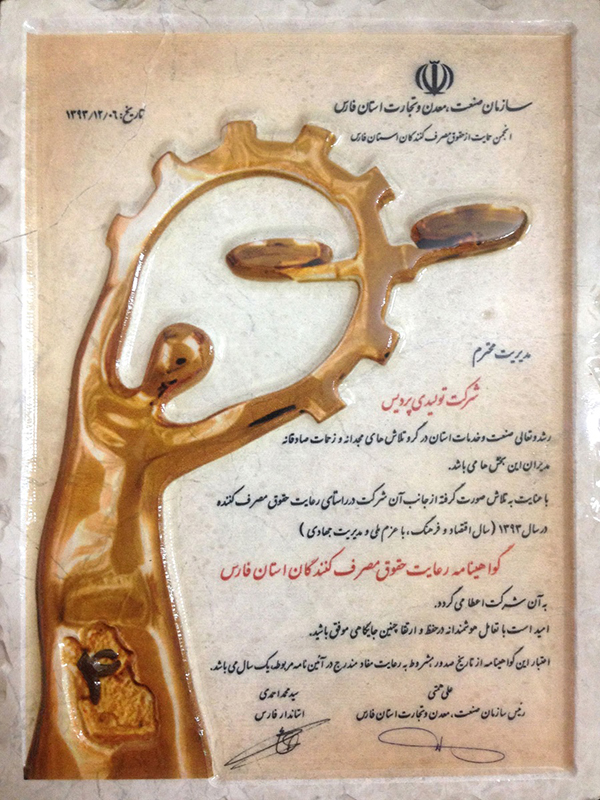 سازمان صنعت، معدن و تجارت استان فارس
انجمن حمایت از حقوق مصرف کنندگان استان فارس
تاریخ: ۱۳۹۳/۱۲/۰۶
مدیریت محترم
شرکت تولیدی پردیس
رشد و تعالی صنعت و خدمات استان در گرو تلاش های مجدانه و زحمات صادقانه
مدیران این بخش ها می باشد.
با عنایت به تلاش صورت گرفته از جانب آن شرکت در راستای رعایت حقوق مصرف کننده
در سال ۱۳۹۳ ( سال اقتصاد و فرهنگ ، با عزم ملی و مدیریت جهادی )
گواهینامه رعایت حقوق مصرف کنندگان استان فارس
به آن شرکت اعطا می گردد.
امید است با تعامل هوشمندانه در حفظ و ارتقا چنین جایگاهی موفق باشید.
اعتبار این گواهینامه از تاریخ صدور بشرط رعایت مفاد مندرج در آئین نامه مربوطه، یک سال می باشد.
علی همتی
رئیس سازمان صنعت، معدن و تجارت استان فارس
سید محمد احمدی
استاندار فارس